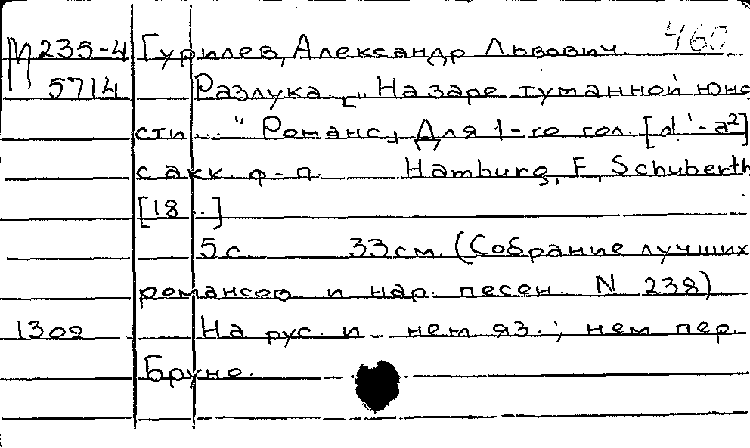 М 235-4 Гурилев, Александр Львович. 460
5714 Разлука [„На заре туманной юно
сти..." Романс] Для 1-го гол. [d'-a²]
с акк. ф-п. Hamburg, F. Schuberth
[18..]
5 с. 33 см. (Собрание лучших
романсов и нар. песен N 238)
1302 На рус. и нем яз.; нем пер.
Бруно.